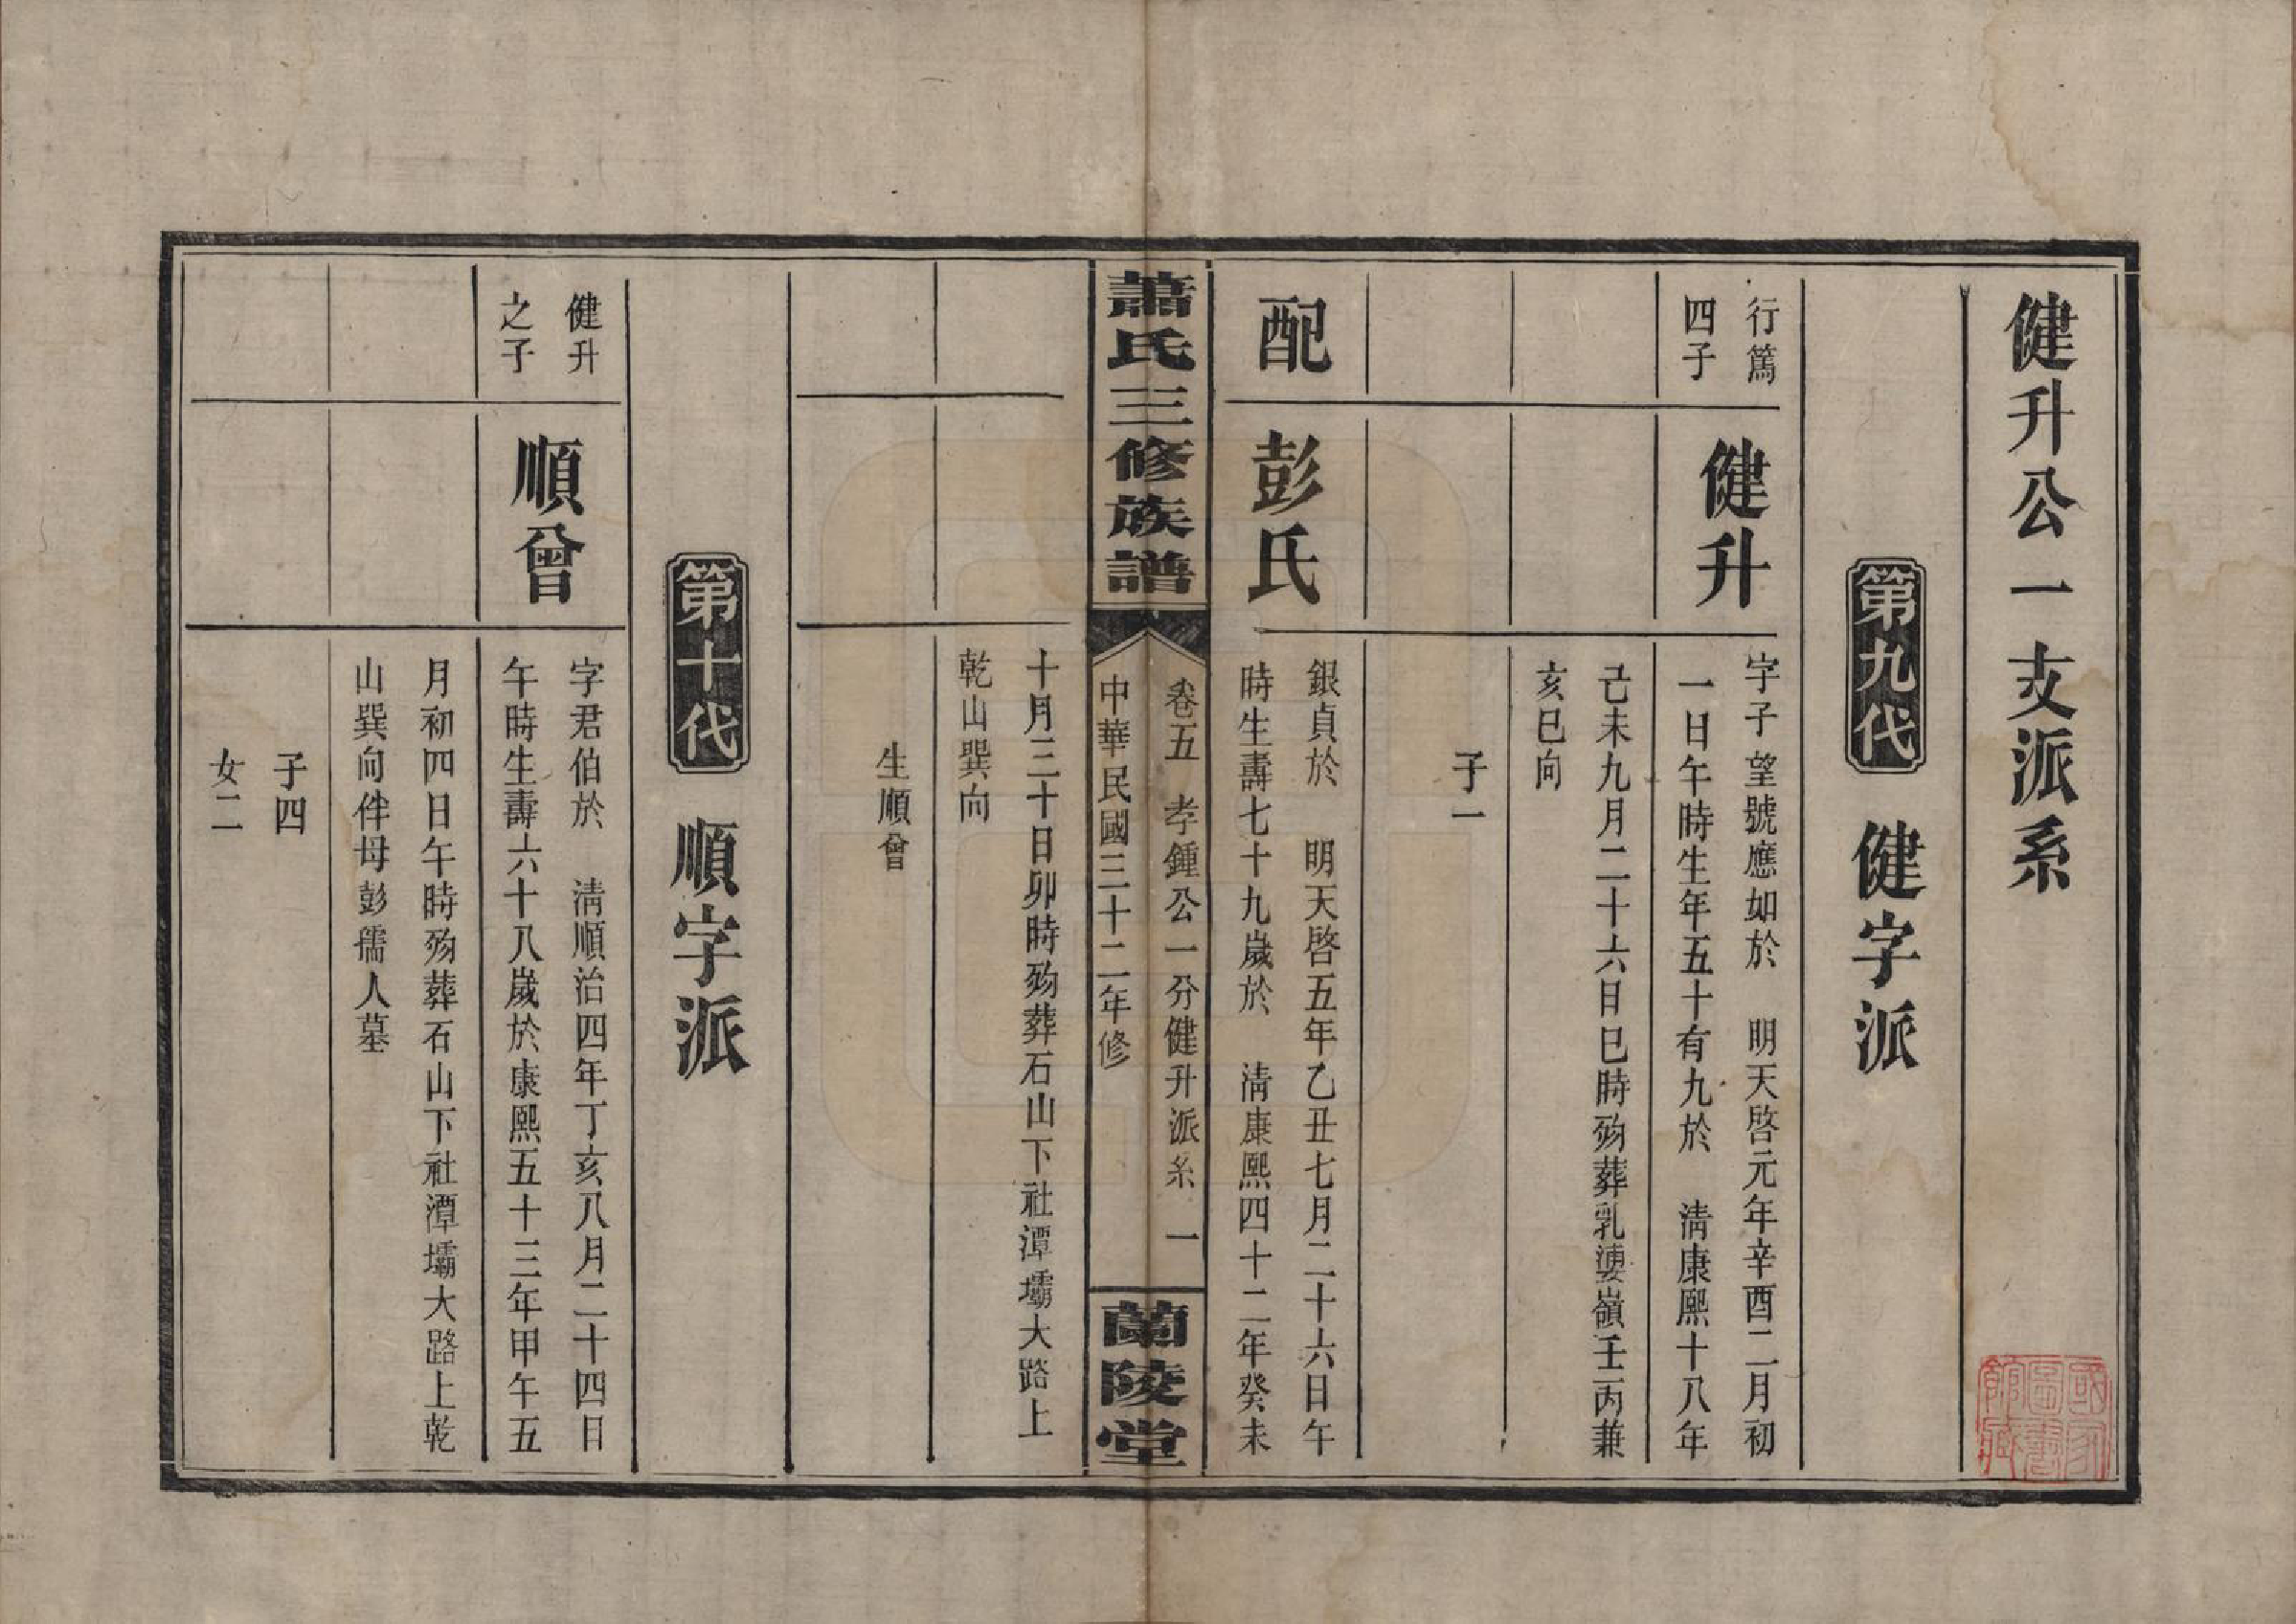 健升公一支派系
第九代　健字派
行篤
四子
健升
字子望號應如於　明天啓元年辛酉二月初
一日午時生年五十有九於　清康熙十八年
己未九月二十六日巳時歿葬乳婆嶺壬丙兼
亥巳向
子一
配
彭氏
銀貞於　明天啓五年乙丑七月二十六日午
時生壽七十九歲於　清康熙四十二年癸未
蕭氏三修族譜
卷五　孝鍾公一分健升派系　一
中華民國三十二年修
蘭陵堂
十月三十日卯時歿葬石山下社潭壩大路上
乾山巽向
生順曾
第十代　順字派
健升
之子
順曾
字君伯於　清順治四年丁亥八月二十四日
午時生壽六十八歲於康熙五十三年甲午五
月初四日午時歿葬石山下社潭壩大路上乾
山巽向伴母彭孺人墓
子四
女二
國家圖書館藏